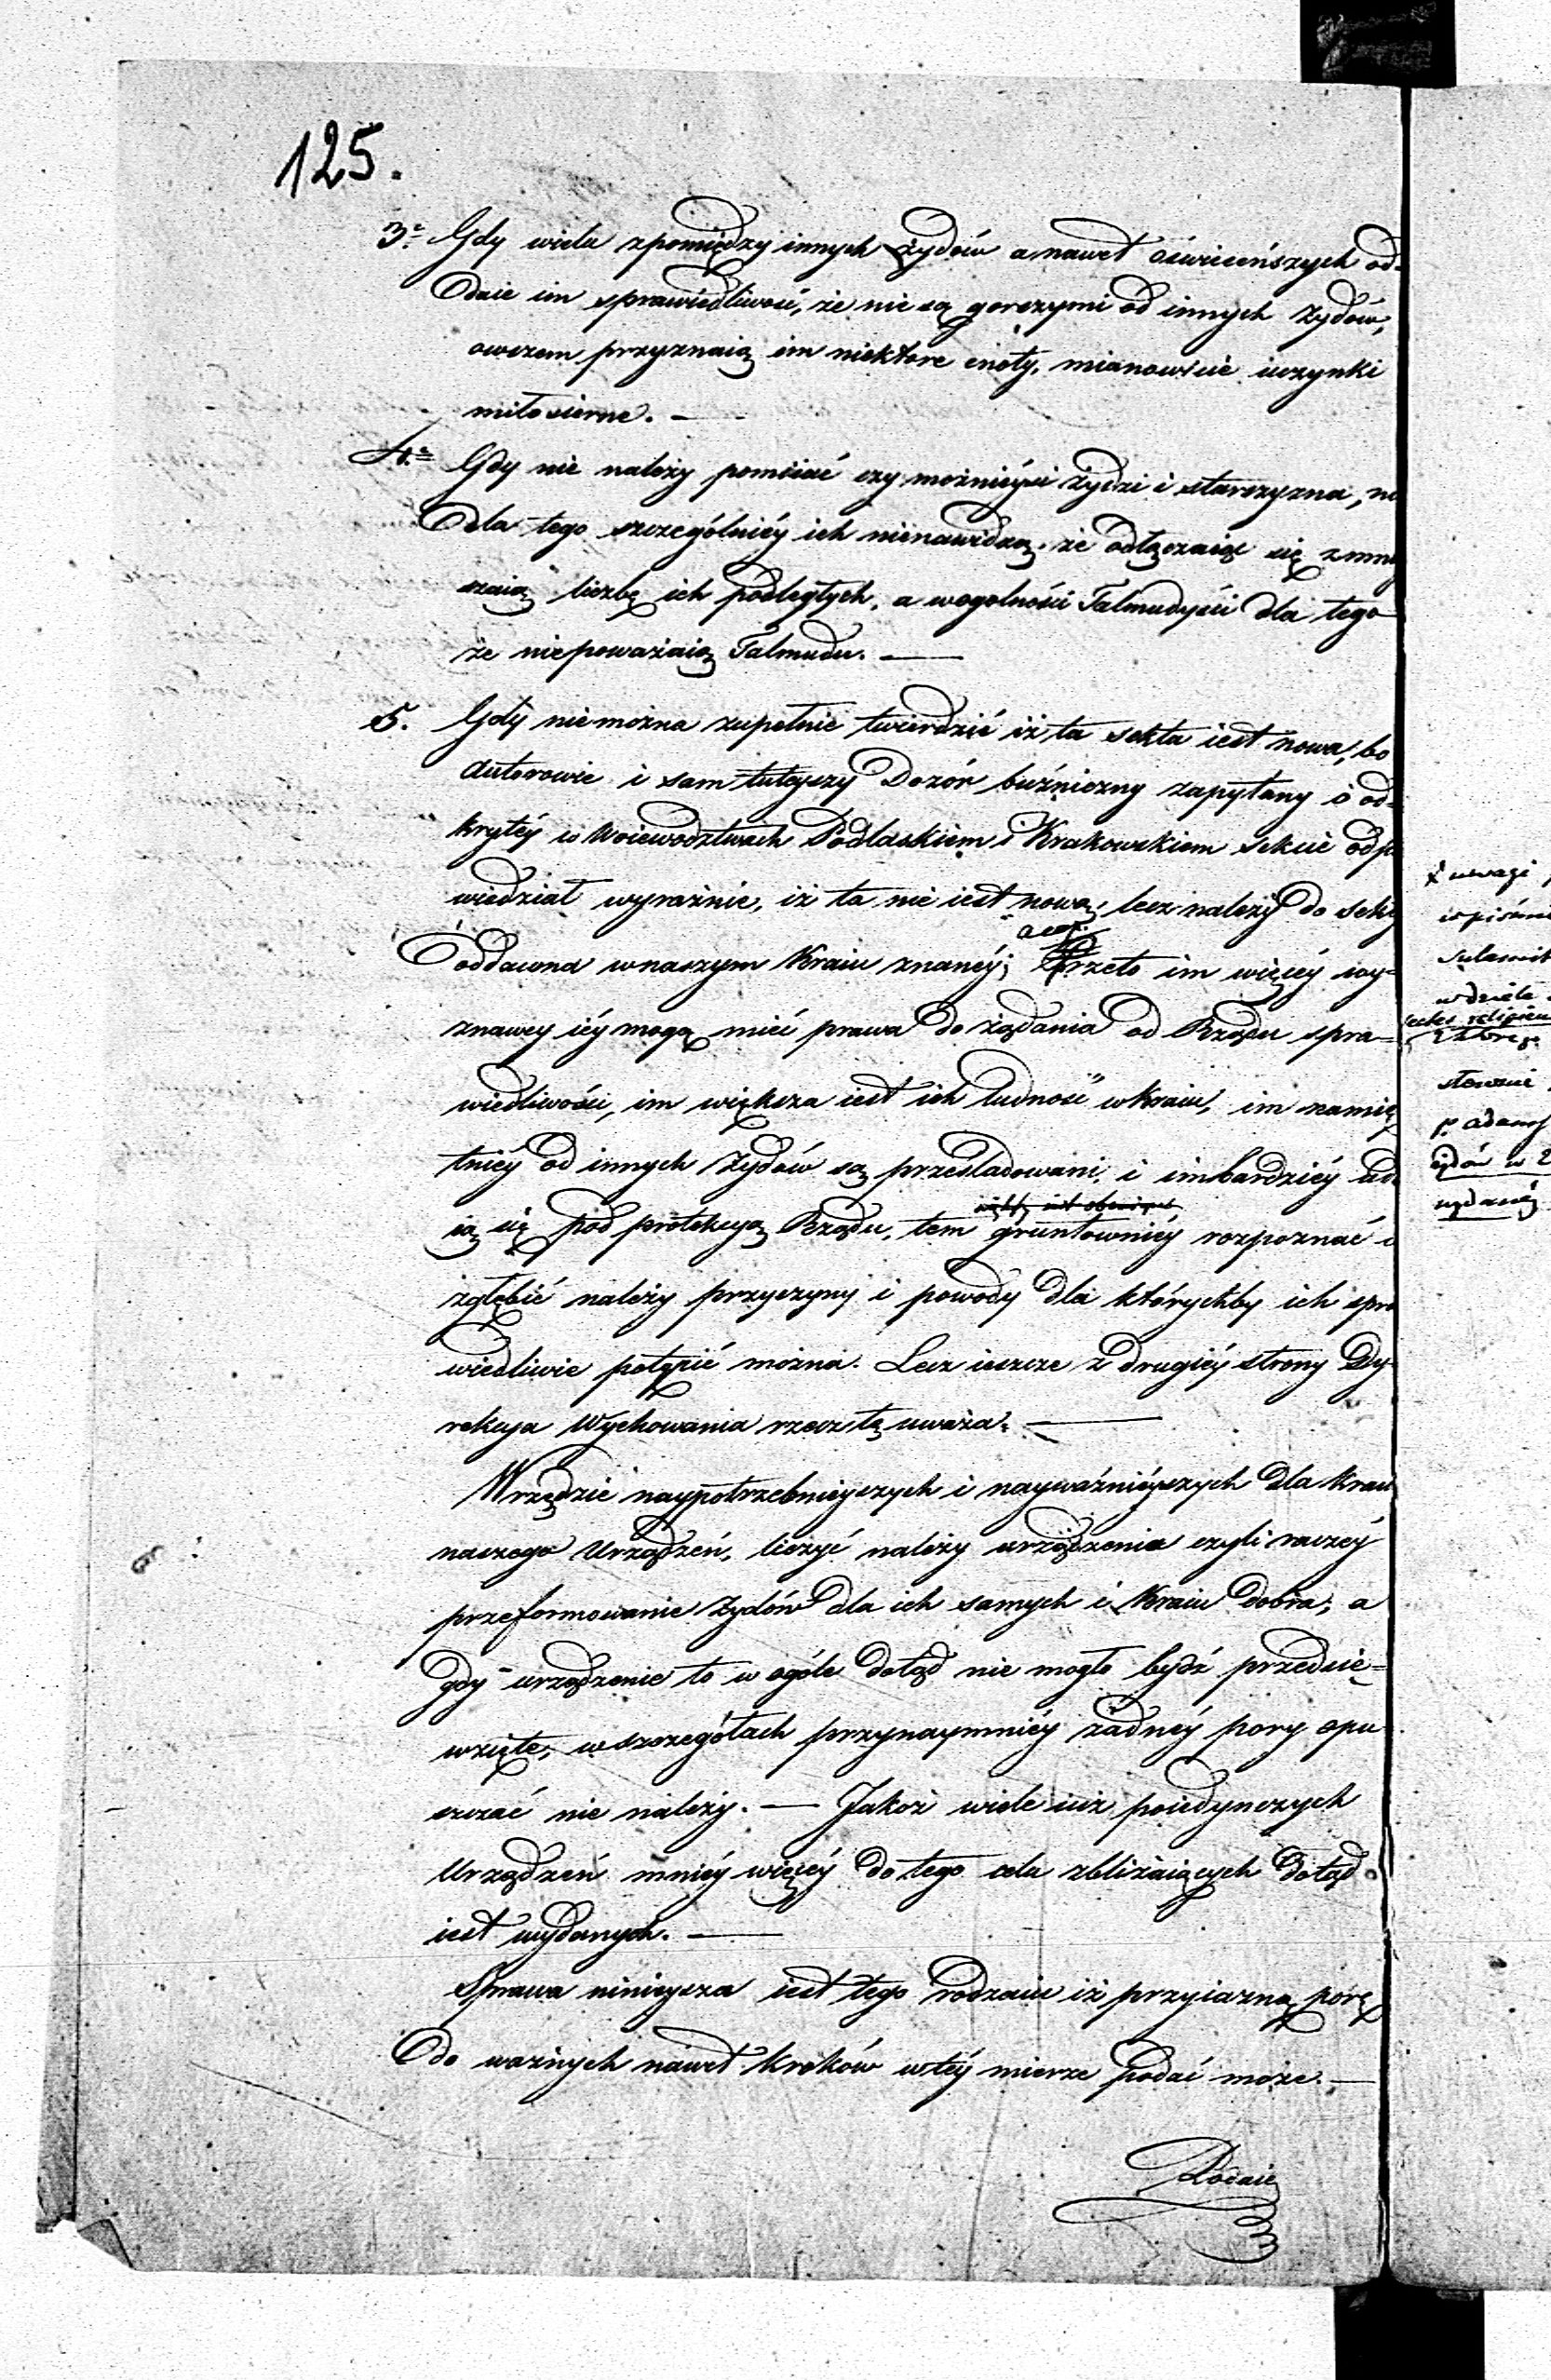 125.
3º Gdy wielu zpomiędzy innych żydów a nawet oświeceńszych od=
daie im sprawiedliwość, że nie są gorszymi od innych Żydów,
owszem przyznaią im niektore cnoty, mianowicie uczynki
miłosierne. —
4º Gdy nie należy pomiiać czy możnieysi żydzi i starszyzna, ni
dla tego szczególniéy ich nienawidzą, że odłączaiąc się zmniy
szaią liczbę ich podległych, a wogolności Talmudyści dla tego
że niepoważaią Talmudu. —
5. Gdy nie można zupełnie twierdzić iż ta sekta iest nowa, bo
Autorowie i sam tuteyszy Dozór bużniczny zapytany o od=
krytéy w Woiewodztwach Podlaskiem i Krakowskiem sekcie odpo
wiedział wyraźnie, iż ta nie iest nową, lecz należy do sekty
oddawna w naszym Kraiu znanéy; Przeto im więcéy wy=
znawcy iéy mogą mieć prawa do żądania od Rządu spra=
wiedliwości, im większa iest ich ludność w Kraiu, im namię
tniéy od innych Żydów są prześladowani, i imbardziéy uda
ią się pod protekcyą Rządu, tem gruntowniéy rozpoznać i
zgłębić należy przyczyny i powody dla którychby ich spra
wiedliwie potępić można. Lecz ieszcze z drugiéy strony Dy=
rekcya Wychowania rzecz tę uważa. —
W rzędzie naypotrzebnieyszych i nayważniéyszych dla Kraiu
naszego Urządzeń, liczyć należy urządzenie czyli raczéy
przeformowanie Żydów dla ich samych i Kraiu dobra; a
gdy urządzenie to w ogóle dotąd nie mogło bydź przedsię=
wzięte, w szczegółach przynaymniéy żadnéy pory opu
szczać nie należy. — Jakoż wiele iuż poiedynczych
Urządzeń mniéy więcéy do tego celu zbliżaiących dotąd
iest wydanych. —
Sprawa ninieysza iest tego rodzaiu iż przyiazną porę
do ważnych nawet Kroków w téy mierze podać może. —
Podaie
uwagi
w piśmie
sulamit
w dziele
sectes religieu
z którego
p. adamj
żydów w
wydanéy